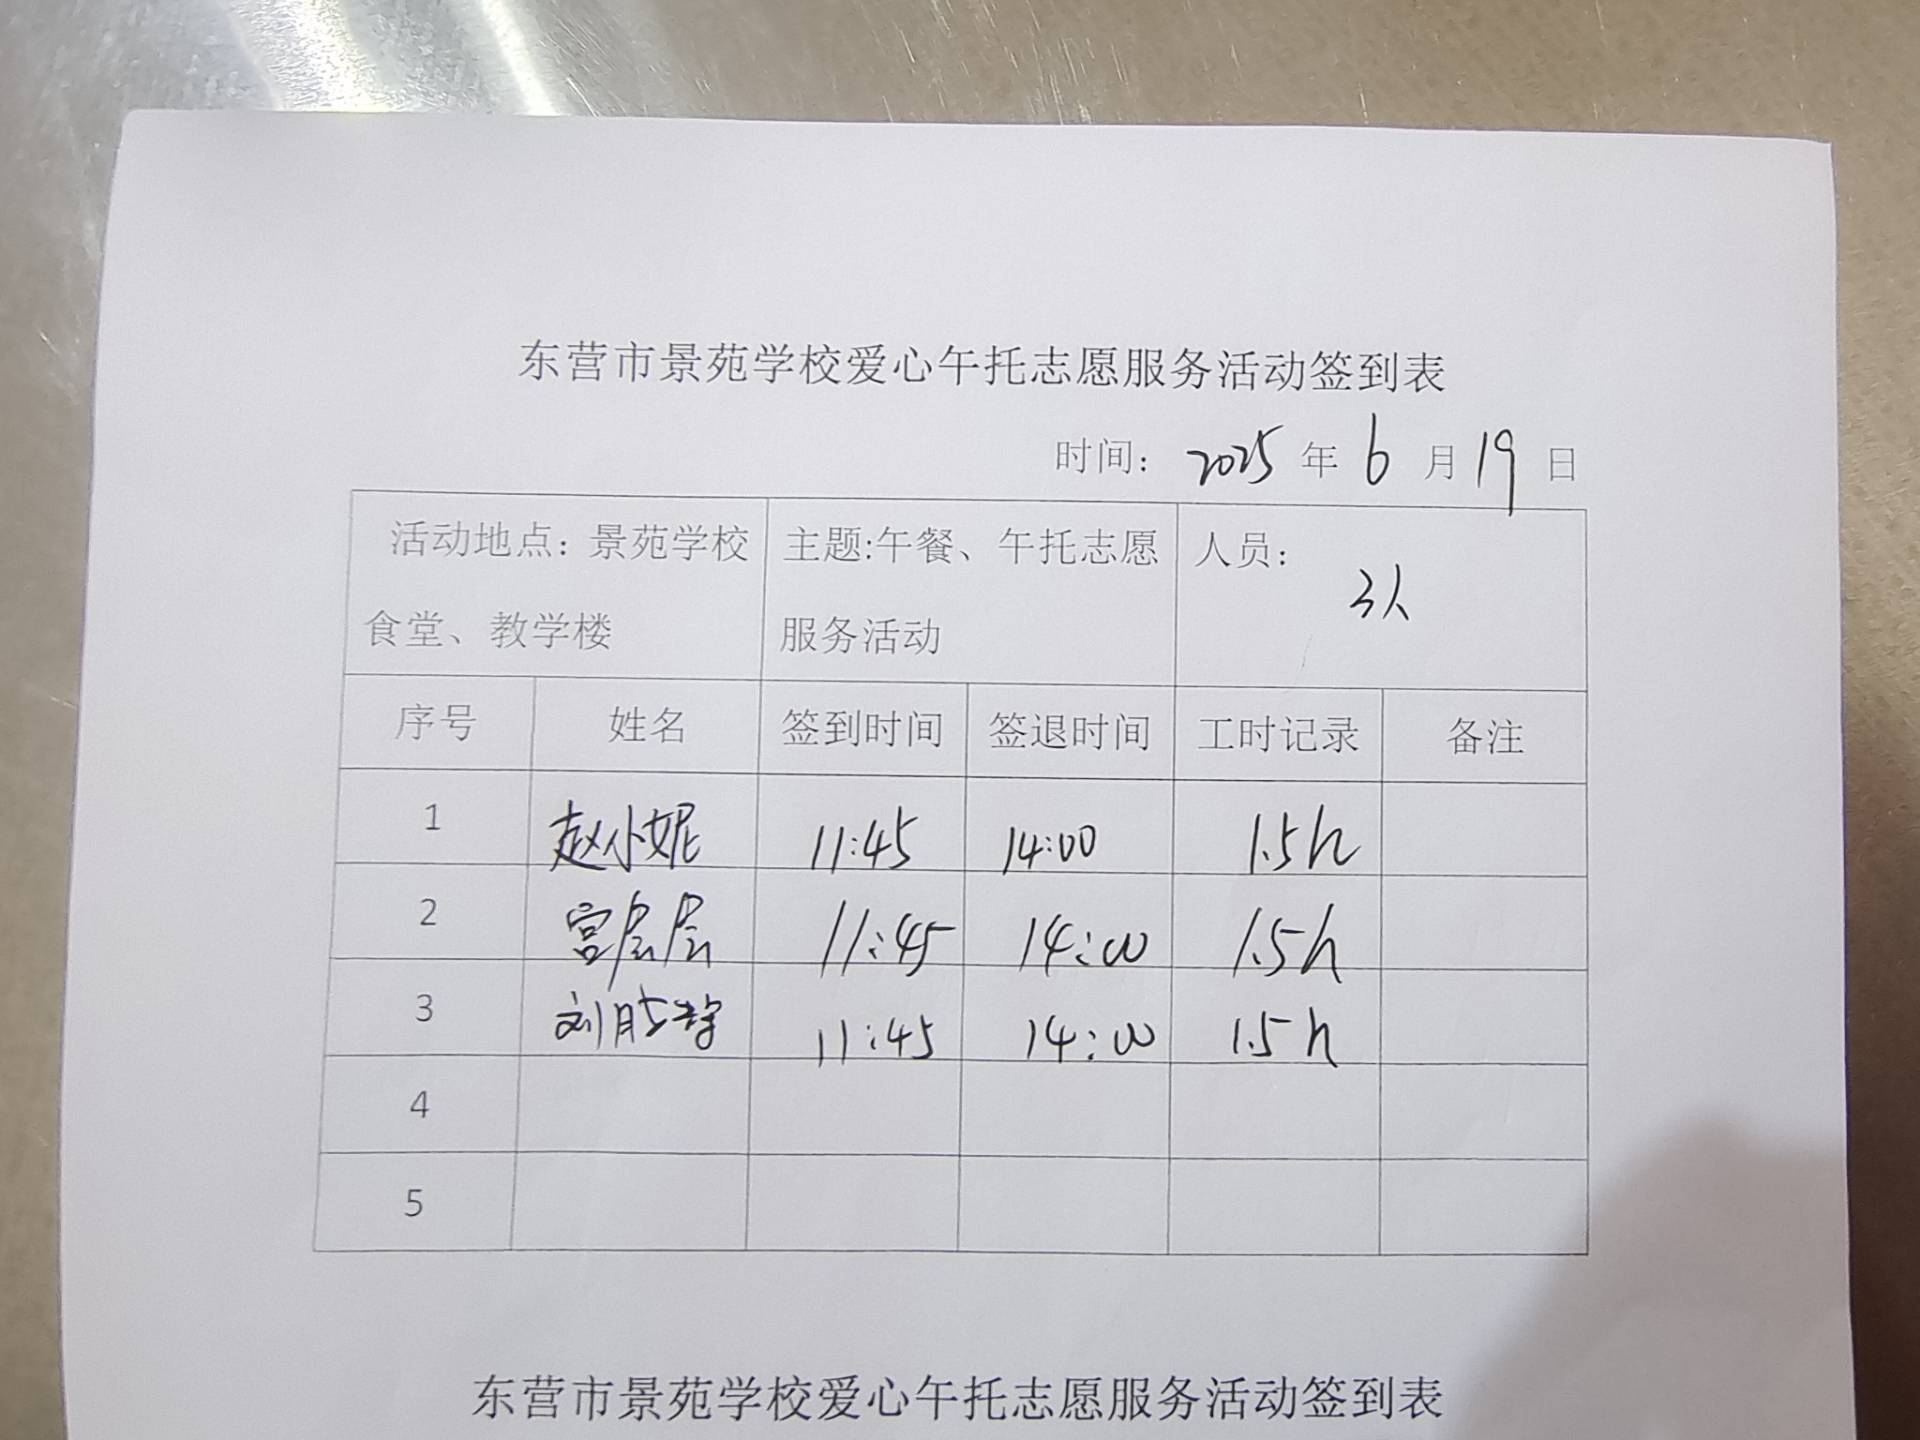 东营市景苑学校爱心午托志愿服务活动签到表
时间： 2025 年 6 月 19 日
活动地点：景苑学校食堂、教学楼 主题:午餐、午托志愿服务活动 人员： 3人
序号 姓名 签到时间 签退时间 工时记录 备注
1 赵小妮 11:45 14:00 1.5h
2 宫层层 11:45 14:00 1.5h
3 刘 11:45 14:00 1.5h
4
5
东营市景苑学校爱心午托志愿服务活动签到表